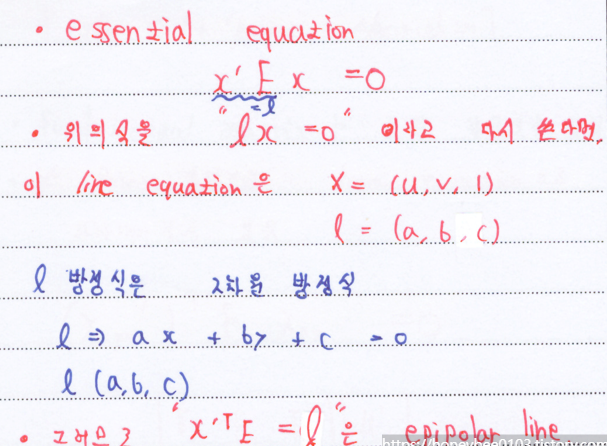 • essential equation
x' E x = 0
" = l
• 위의 식을 "lx = 0" 이라고 다시 쓴다면,
이 line equation은 X = (u, v, 1)
l = (a, b, c)
l 방정식은 2차원 방정식
l ⇒ ax + by + c = 0
l (a, b, c)
• 그러므로 "x'ᵀE = l"은 epipolar line
https://honeybee0103.tistory.com